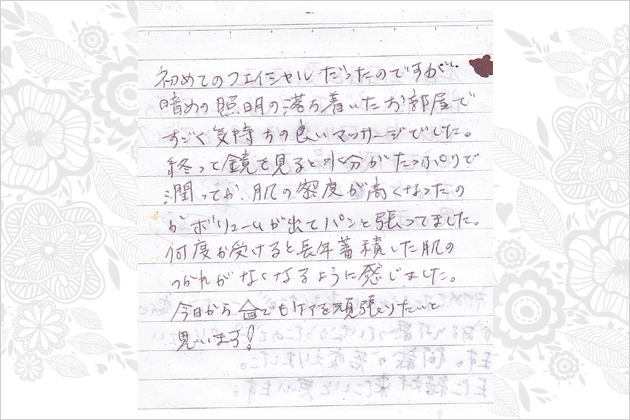 初めてのフェイシャルだったのですが、
暗めの照明の落ち着いたお部屋で
すごく気持ちの良いマッサージでした。
終って鏡を見ると水分がたっぷりで
潤ってか、肌の密度が高くなったの
かボリュームが出てパンと張ってました。
何度か受けると長年蓄積した肌の
つかれがなくなるように感じました。
今日から でもケアを頑張りたいと
思います！